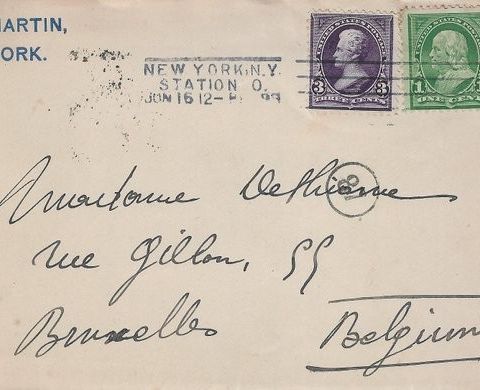 MARTIN,
YORK.
NEW YORK, N.Y.
STATION O.
JUN 16 12- 99
UNITED STATES POSTAGE
3 3
THREE CENTS
1
ONE CENT
Madame
rue Gillon, 55
Bruxelles
Belgium